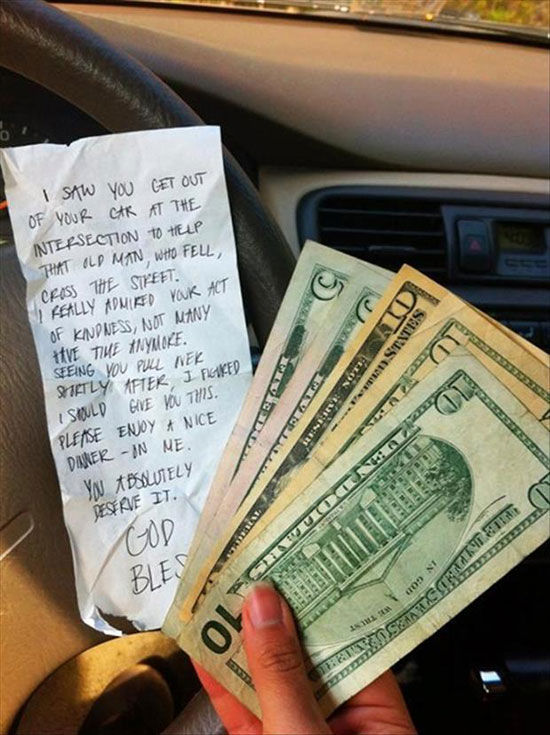 I SAW YOU GET OUT
OF YOUR CAR AT THE
INTERSECTION TO HELP
THAT OLD MAN, WHO FELL,
CROSS THE STREET.
I REALLY ADMIRED YOUR ACT
OF KINDNESS, NOT MANY
HAVE TIME ANYMORE.
SEEING YOU PULL OVER
SHORTLY AFTER, I FIGURED
I SHOULD GIVE YOU THIS.
PLEASE ENJOY A NICE
DINNER - ON ME.
YOU ABSOLUTELY
DESERVE IT.
GOD
BLES
5
10
10
10
IN GOD
WE TRUST